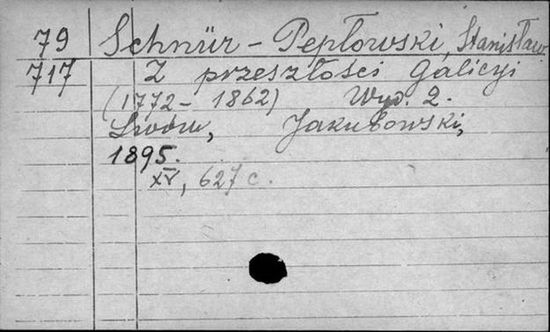 79 Schnür-Pepłowski, Stanisław
717 Z przeszłości Galicyi
(1772-1862) Wyd. 2.
Lwów, Jakubowski,
1895.
XV, 627 c.